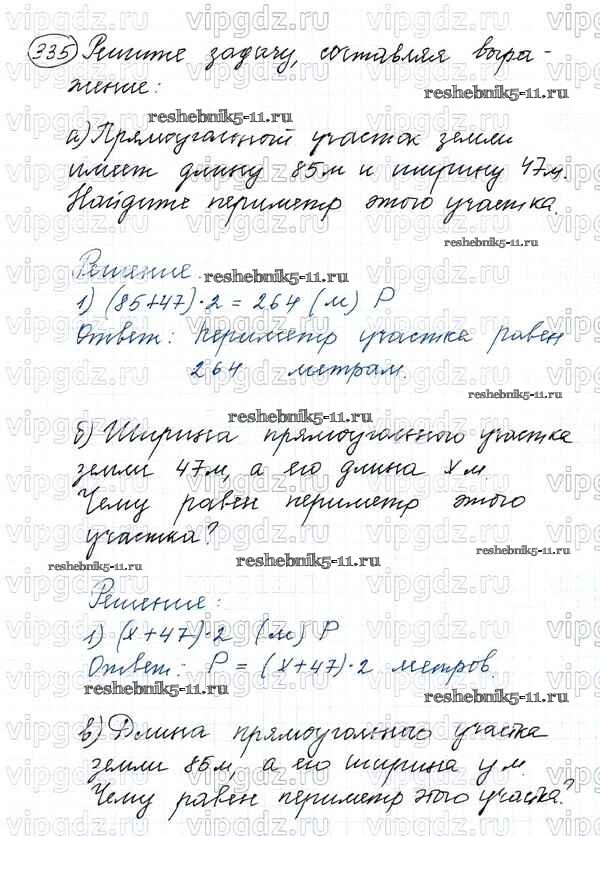 335 Решите задачу, составляя выра-
жение:
reshebnik5-11.ru
а) Прямоугольный участок земли
имеет длину 85 м и ширину 47 м.
Найдите периметр этого участка.
reshebnik5-11.ru
Решение.
reshebnik5-11.ru
1) (85+47)·2 = 264 (м) P
Ответ: периметр участка равен
264 метрам.
reshebnik5-11.ru
reshebnik5-11.ru
б) Ширина прямоугольного участка
земли 47 м, а его длина x м.
Чему равен периметр этого
участка?
reshebnik5-11.ru
reshebnik5-11.ru
reshebnik5-11.ru
Решение:
1) (x+47)·2 (м) P
Ответ: P = (x+47)·2 метров.
reshebnik5-11.ru
reshebnik5-11.ru
в) Длина прямоугольного участка
земли 85 м, а его ширина y м.
Чему равен периметр этого участка?
vipgdz.ru